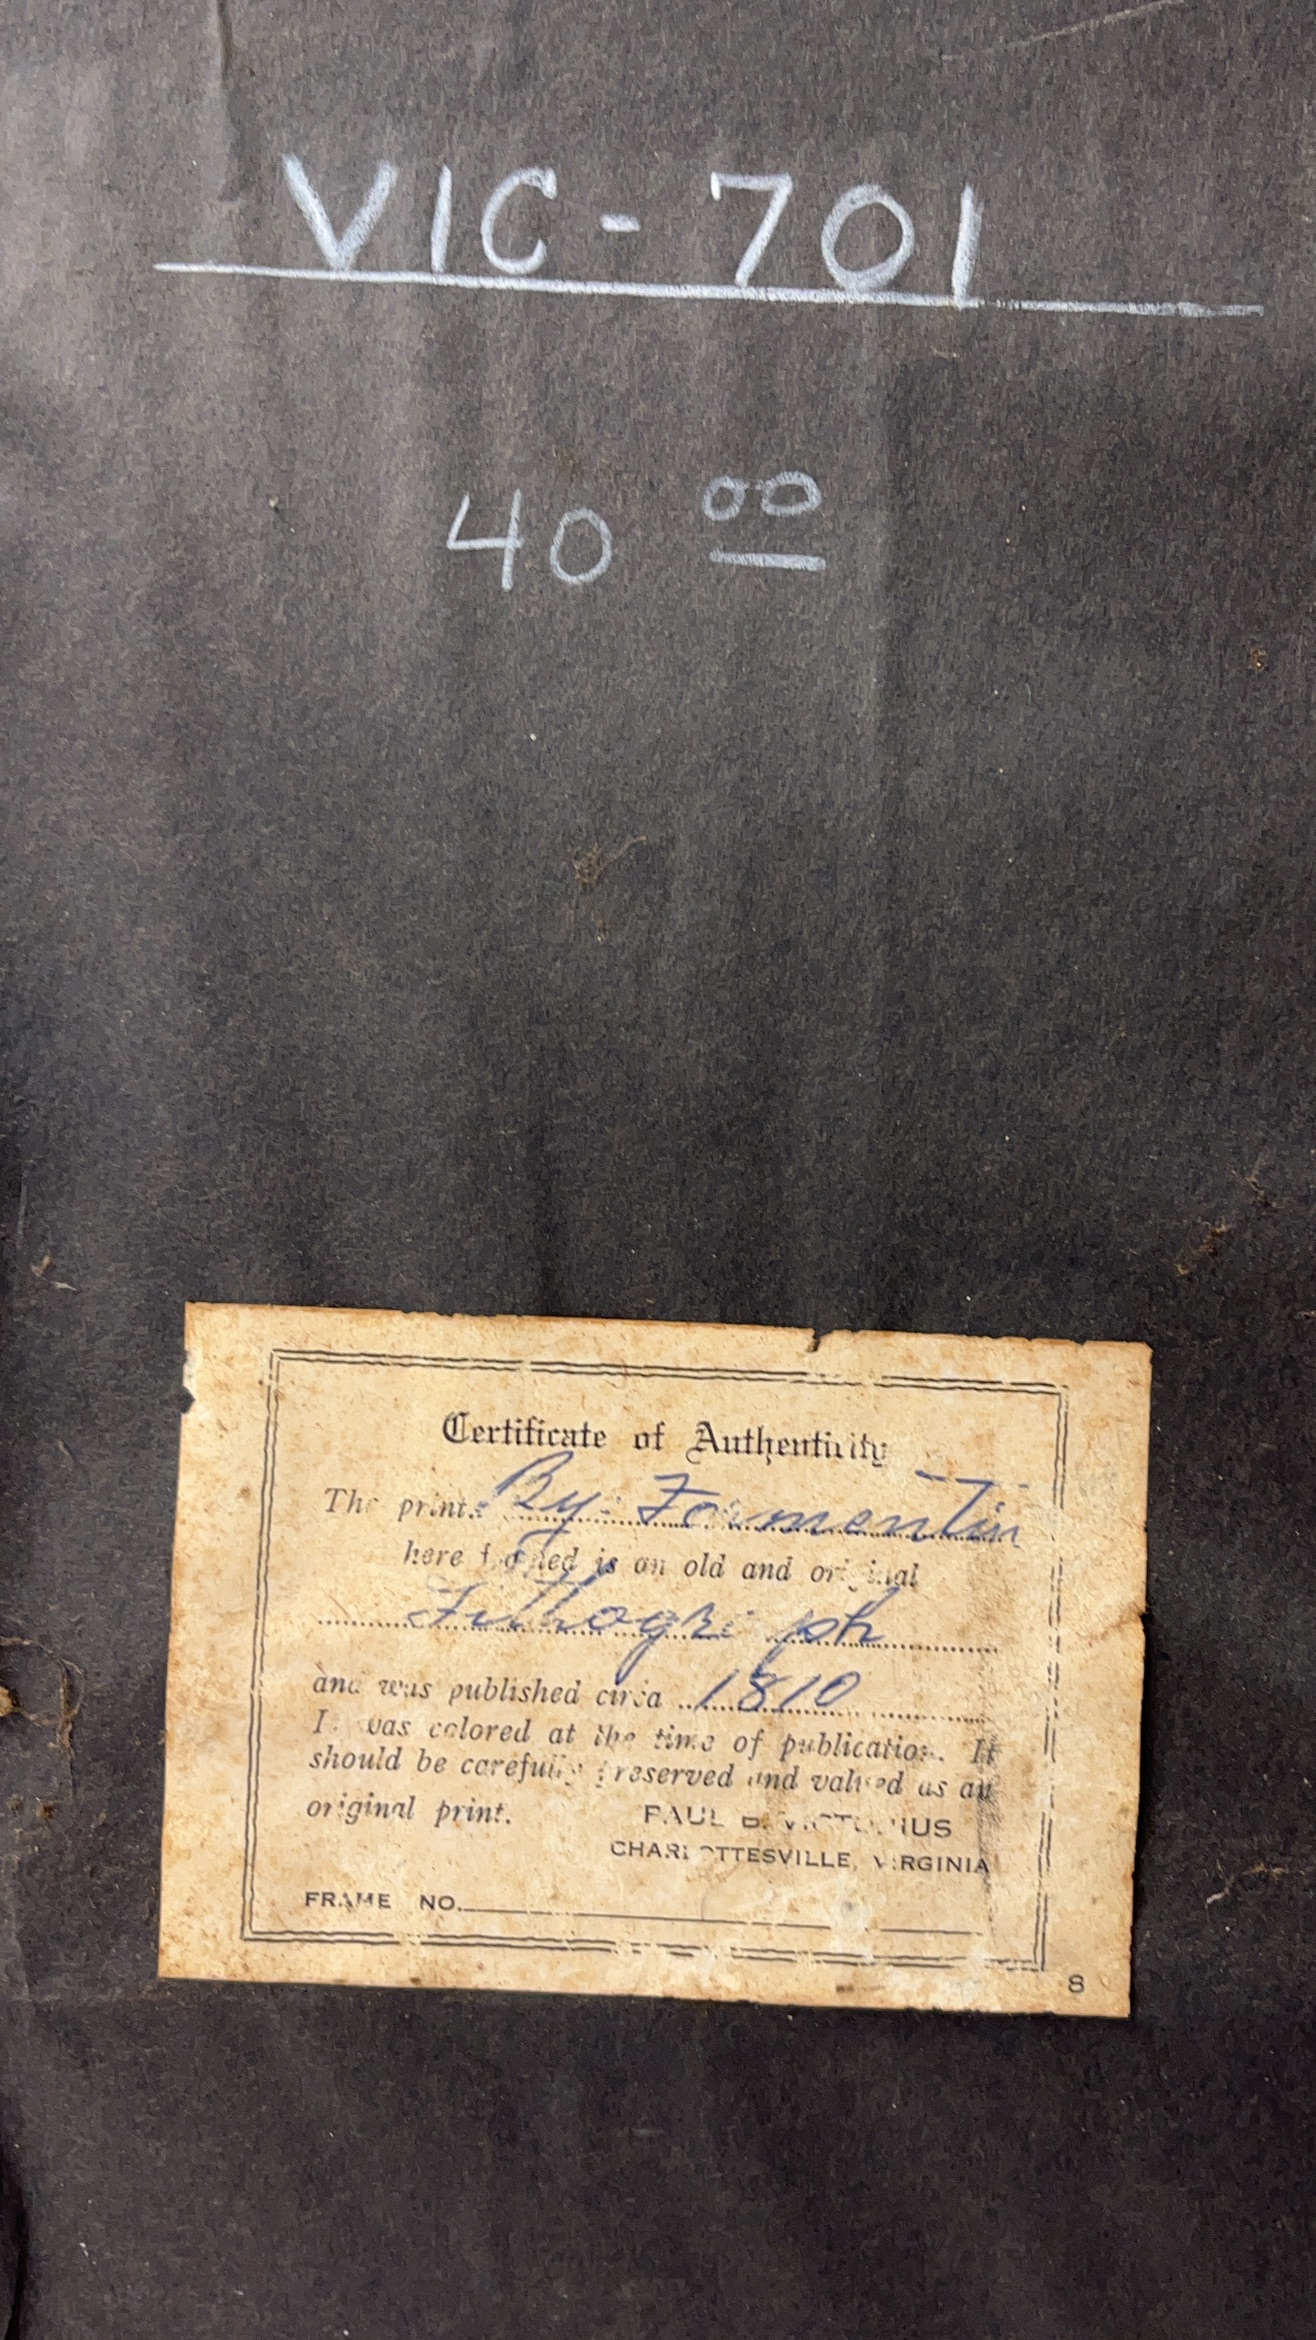 VIC - 701
40 00
Certificate of Authenticity
The print By: Formentin
here framed is an old and original
Lithograph
and was published circa 1810
It was colored at the time of publication. It
should be carefully preserved and valued as an
original print.
PAUL B. VICTORIUS
CHARLOTTESVILLE, VIRGINIA
FRAME NO.
8